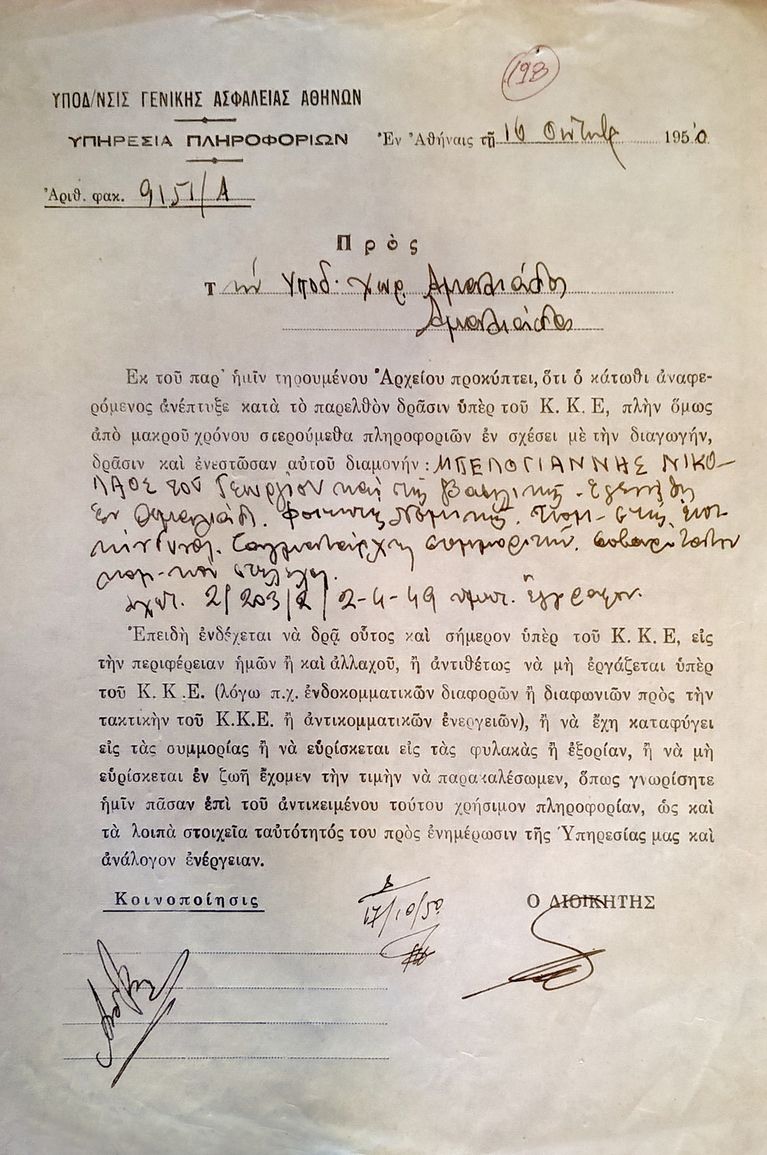 193
ΥΠΟΔ/ΝΣΙΣ ΓΕΝΙΚΗΣ ΑΣΦΑΛΕΙΑΣ ΑΘΗΝΩΝ
ΥΠΗΡΕΣΙΑ ΠΛΗΡΟΦΟΡΙΩΝ Ἐν Ἀθήναις τῇ 16 Οκτωβρ 1950
Ἀριθ. φακ. 9151/Α
Πρὸς
Την Υποδ. Χωρ. Αμαλιάδος
Αμαλιάδα
Εκ τοῦ παρ' ἡμῖν τηρουμένου Ἀρχείου προκύπτει, ὅτι ὁ κάτωθι ἀναφε-
ρόμενος ἀνέπτυξε κατὰ τὸ παρελθὸν δρᾶσιν ὑπὲρ τοῦ Κ. Κ. Ε, πλὴν ὅμως
ἀπὸ μακροῦ χρόνου στερούμεθα πληροφοριῶν ἐν σχέσει μὲ τὴν διαγωγήν,
δρᾶσιν καὶ ἐνεστῶσαν αὐτοῦ διαμονήν : ΜΠΕΛΟΓΙΑΝΝΗΣ ΝΙΚΟ-
ΛΑΟΣ του Γεωργίου και της Βασιλικής. Εγεννήθη
Εν Αμαλιάδι. Φοιτητής Νομικής.
συμμορίτης.
στέλεχος.
σχετ. 2/203/2/2-4-49 υμετ. έγγραφον.
Ἐπειδὴ ἐνδέχεται νὰ δρᾷ οὗτος καὶ σήμερον ὑπὲρ τοῦ Κ. Κ. Ε, εἰς
τὴν περιφέρειαν ἡμῶν ἢ καὶ ἀλλαχοῦ, ἢ ἀντιθέτως νὰ μὴ ἐργάζεται ὑπὲρ
τοῦ Κ. Κ .Ε. (λόγῳ π.χ. ἐνδοκομματικῶν διαφορῶν ἢ διαφωνιῶν πρὸς τὴν
τακτικὴν τοῦ Κ.Κ.Ε. ἢ ἀντικομματικῶν ἐνεργειῶν), ἢ νὰ ἔχη καταφύγει
εἰς τὰς συμμορίας ἢ νὰ εὑρίσκεται εἰς τὰς φυλακὰς ἢ ἐξορίαν, ἢ νὰ μὴ
εὑρίσκεται ἐν ζωῇ ἔχομεν τὴν τιμὴν νὰ παρακαλέσωμεν, ὅπως γνωρίσητε
ἡμῖν πᾶσαν ἐπὶ τοῦ ἀντικειμένου τούτου χρήσιμον πληροφορίαν, ὡς καὶ
τὰ λοιπὰ στοιχεῖα ταὐτότητός του πρὸς ἐνημέρωσιν τῆς Ὑπηρεσίας μας καὶ
ἀνάλογον ἐνέργειαν.
Κοινοποίησις Ο ΔΙΟΙΚΗΤΗΣ
17/10/50